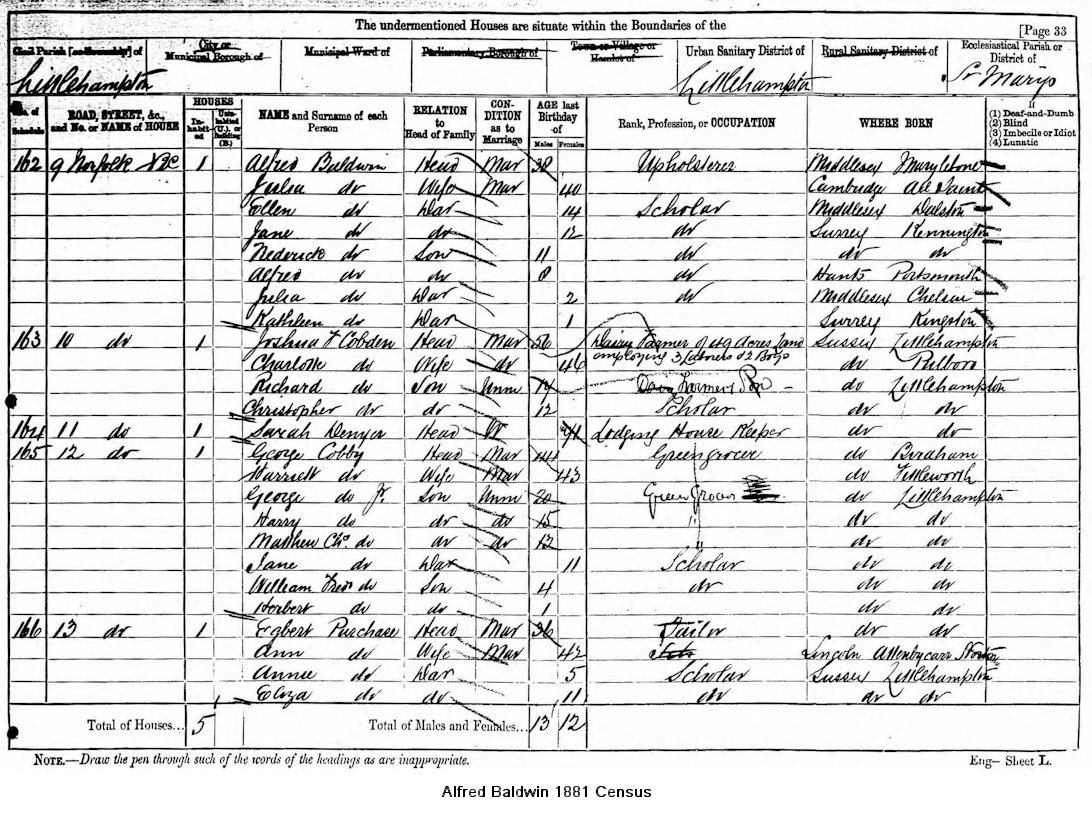 The undermentioned Houses are situate within the Boundaries of the
[Page 33
Civil Parish [or Township] of
City or Municipal Borough of
Municipal Ward of
Parliamentary Borough of
Town or Village or Hamlet of
Urban Sanitary District of
Rural Sanitary District of
Ecclesiastical Parish or District of
Littlehampton Littlehampton St Marys
No. of Schedule
ROAD, STREET, &c., and No. or NAME of HOUSE
HOUSES
Inhabited
Uninhabited (U.), or Building (B.)
NAME and Surname of each Person
RELATION to Head of Family
CONDITION as to Marriage
AGE last Birthday of
Males Females
Rank, Profession, or OCCUPATION
WHERE BORN
If
(1) Deaf-and-Dumb
(2) Blind
(3) Imbecile or Idiot
(4) Lunatic
162 9 Norfolk 1 Alfred Baldwin Head Mar 38 Upholsterer Middlesex Marylebone
Julia do Wife Mar 40 Cambridge All Saints
Ellen do Dar 14 Scholar Middlesex Dalston
Jane do do 12 do Surrey Kennington
Frederick do Son 11 do do do
Alfred do do 8 do Hants Portsmouth
Julia do Dar 2 do Middlesex Chelsea
Kathleen do Dar 1 Surrey Kingston
163 10 do 1 Joshua F Cobden Head Mar 56 Dairy Farmer of 49 acres land employing 3 laborers & 2 Boys Sussex Littlehampton
Charlotte do Wife do 46 do Pulboro
Richard do Son Unm 19 Dairy Farmers Son do Littlehampton
Christopher do do 12 Scholar do do
164 11 do 1 Sarah Denyer Head W Lodging House Keeper do do
165 12 do 1 George Cobby Head Mar 44 Greengrocer do Birdham
Harriett do Wife Mar 43 do Fittleworth
George do Jr. Son Unm 20 Green Grocer do Littlehampton
Harry do do do 15 " do do
Matthew Chs. do do do 13 " do do
Jane do Dar 11 Scholar do do
William Fredk do Son 4 do do do
Herbert do do 1 do do
166 13 do 1 Egbert Purchase Head Mar 36 Tailor do do
Ann do Wife Mar 42 Lincoln
Annie do Dar 5 Scholar Sussex Littlehampton
Eliza do do 11 do do do
Total of Houses... 5 Total of Males and Females... 13 12
NOTE.—Draw the pen through such of the words of the headings as are inappropriate.
Eng– Sheet L.
Alfred Baldwin 1881 Census